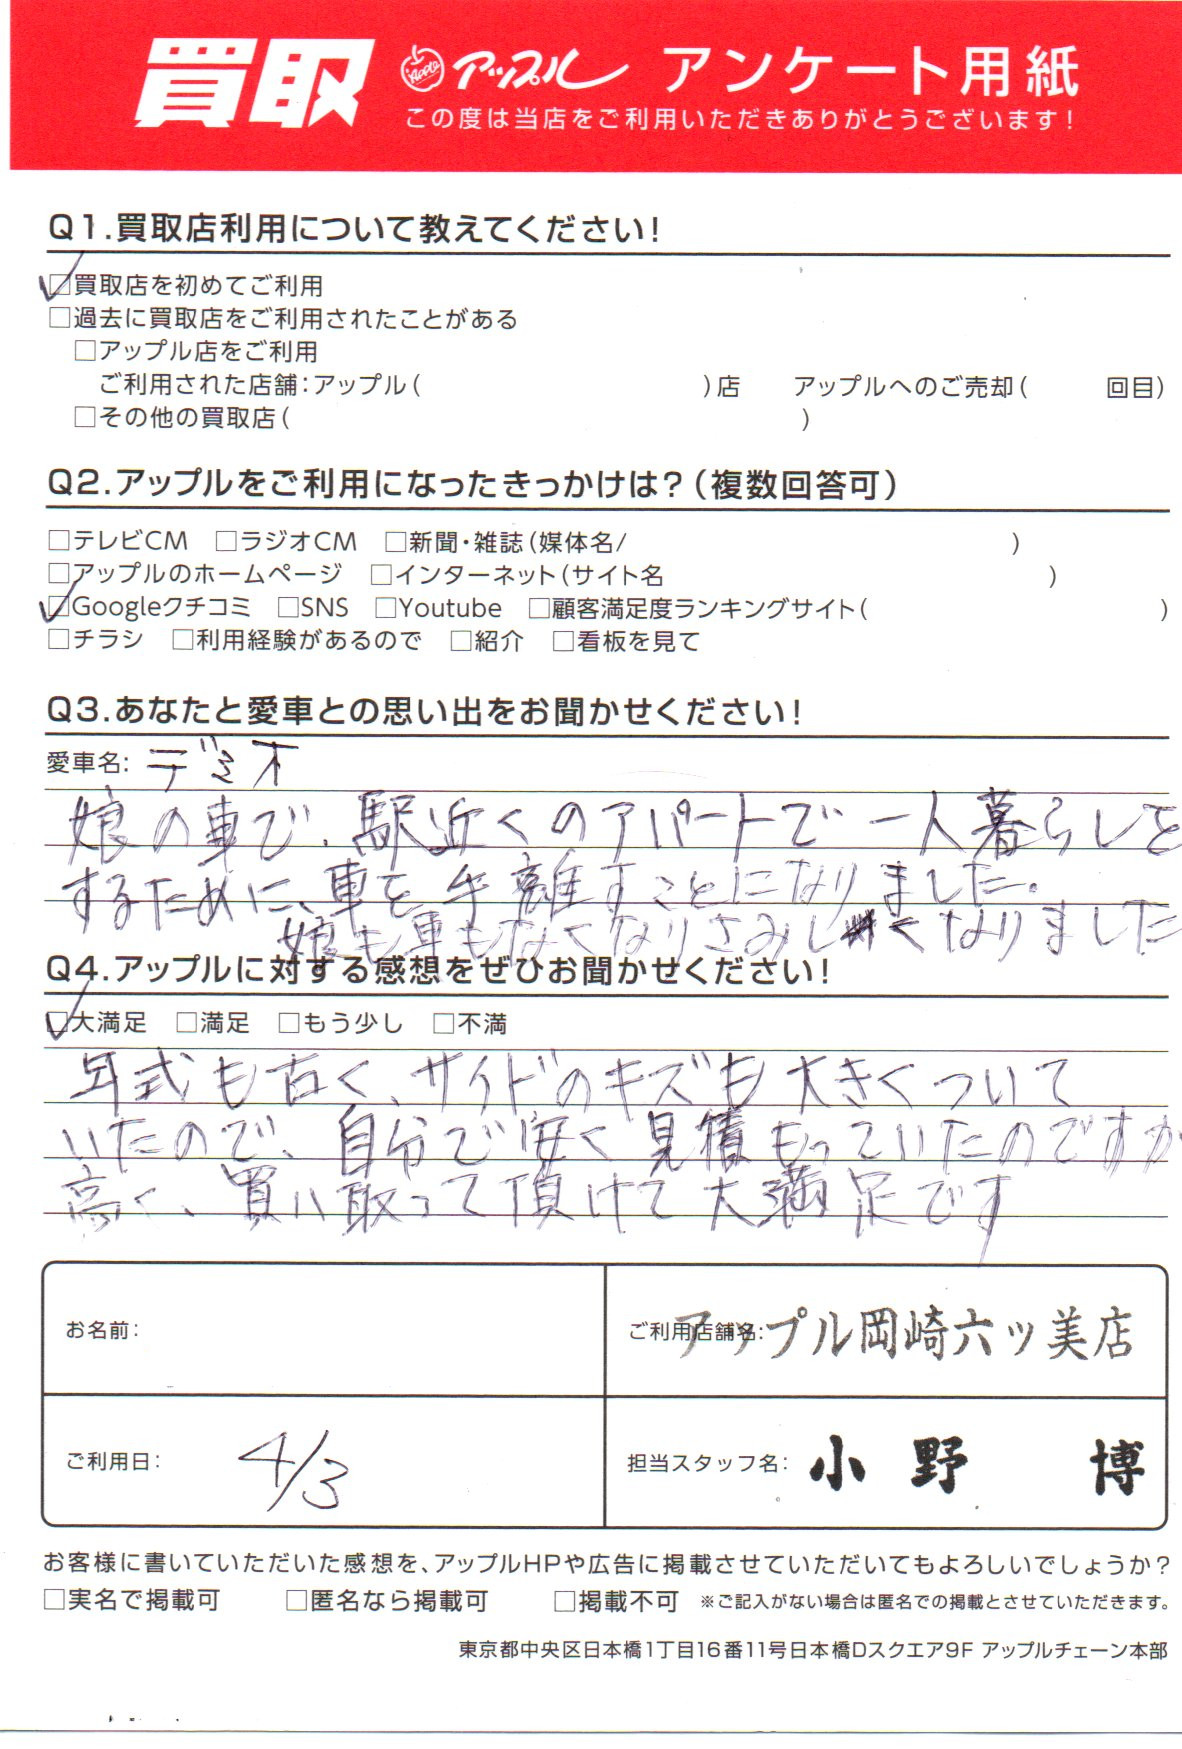 買取 アップル アンケート用紙
この度は当店をご利用いただきありがとうございます!
Q1.買取店利用について教えてください!
☑買取店を初めてご利用
□過去に買取店をご利用されたことがある
□アップル店をご利用
ご利用された店舗:アップル( )店 アップルへのご売却( 回目)
□その他の買取店( )
Q2.アップルをご利用になったきっかけは?(複数回答可)
□テレビCM □ラジオCM □新聞・雑誌(媒体名/ )
□アップルのホームページ □インターネット(サイト名 )
☑Googleクチコミ □SNS □Youtube □顧客満足度ランキングサイト( )
□チラシ □利用経験があるので □紹介 □看板を見て
Q3.あなたと愛車との思い出をお聞かせください!
愛車名: デミオ
娘の車で、駅近くのアパートで一人暮らしを
するために、車を手離すことになりました。
娘も車もなくなりさみしくなりました
Q4.アップルに対する感想をぜひお聞かせください!
☑大満足 □満足 □もう少し □不満
年式も古く、サイドのキズも大きくついて
いたので、自分で安く見積もっていたのですが
高く、買い取って頂けて大満足です
お名前:
ご利用店舗名: アップル岡崎六ッ美店
ご利用日: 4/3
担当スタッフ名: 小野 博
お客様に書いていただいた感想を、アップルHPや広告に掲載させていただいてもよろしいでしょうか?
□実名で掲載可 □匿名なら掲載可 □掲載不可 ※ご記入がない場合は匿名での掲載とさせていただきます。
東京都中央区日本橋1丁目16番11号日本橋Dスクエア9F アップルチェーン本部